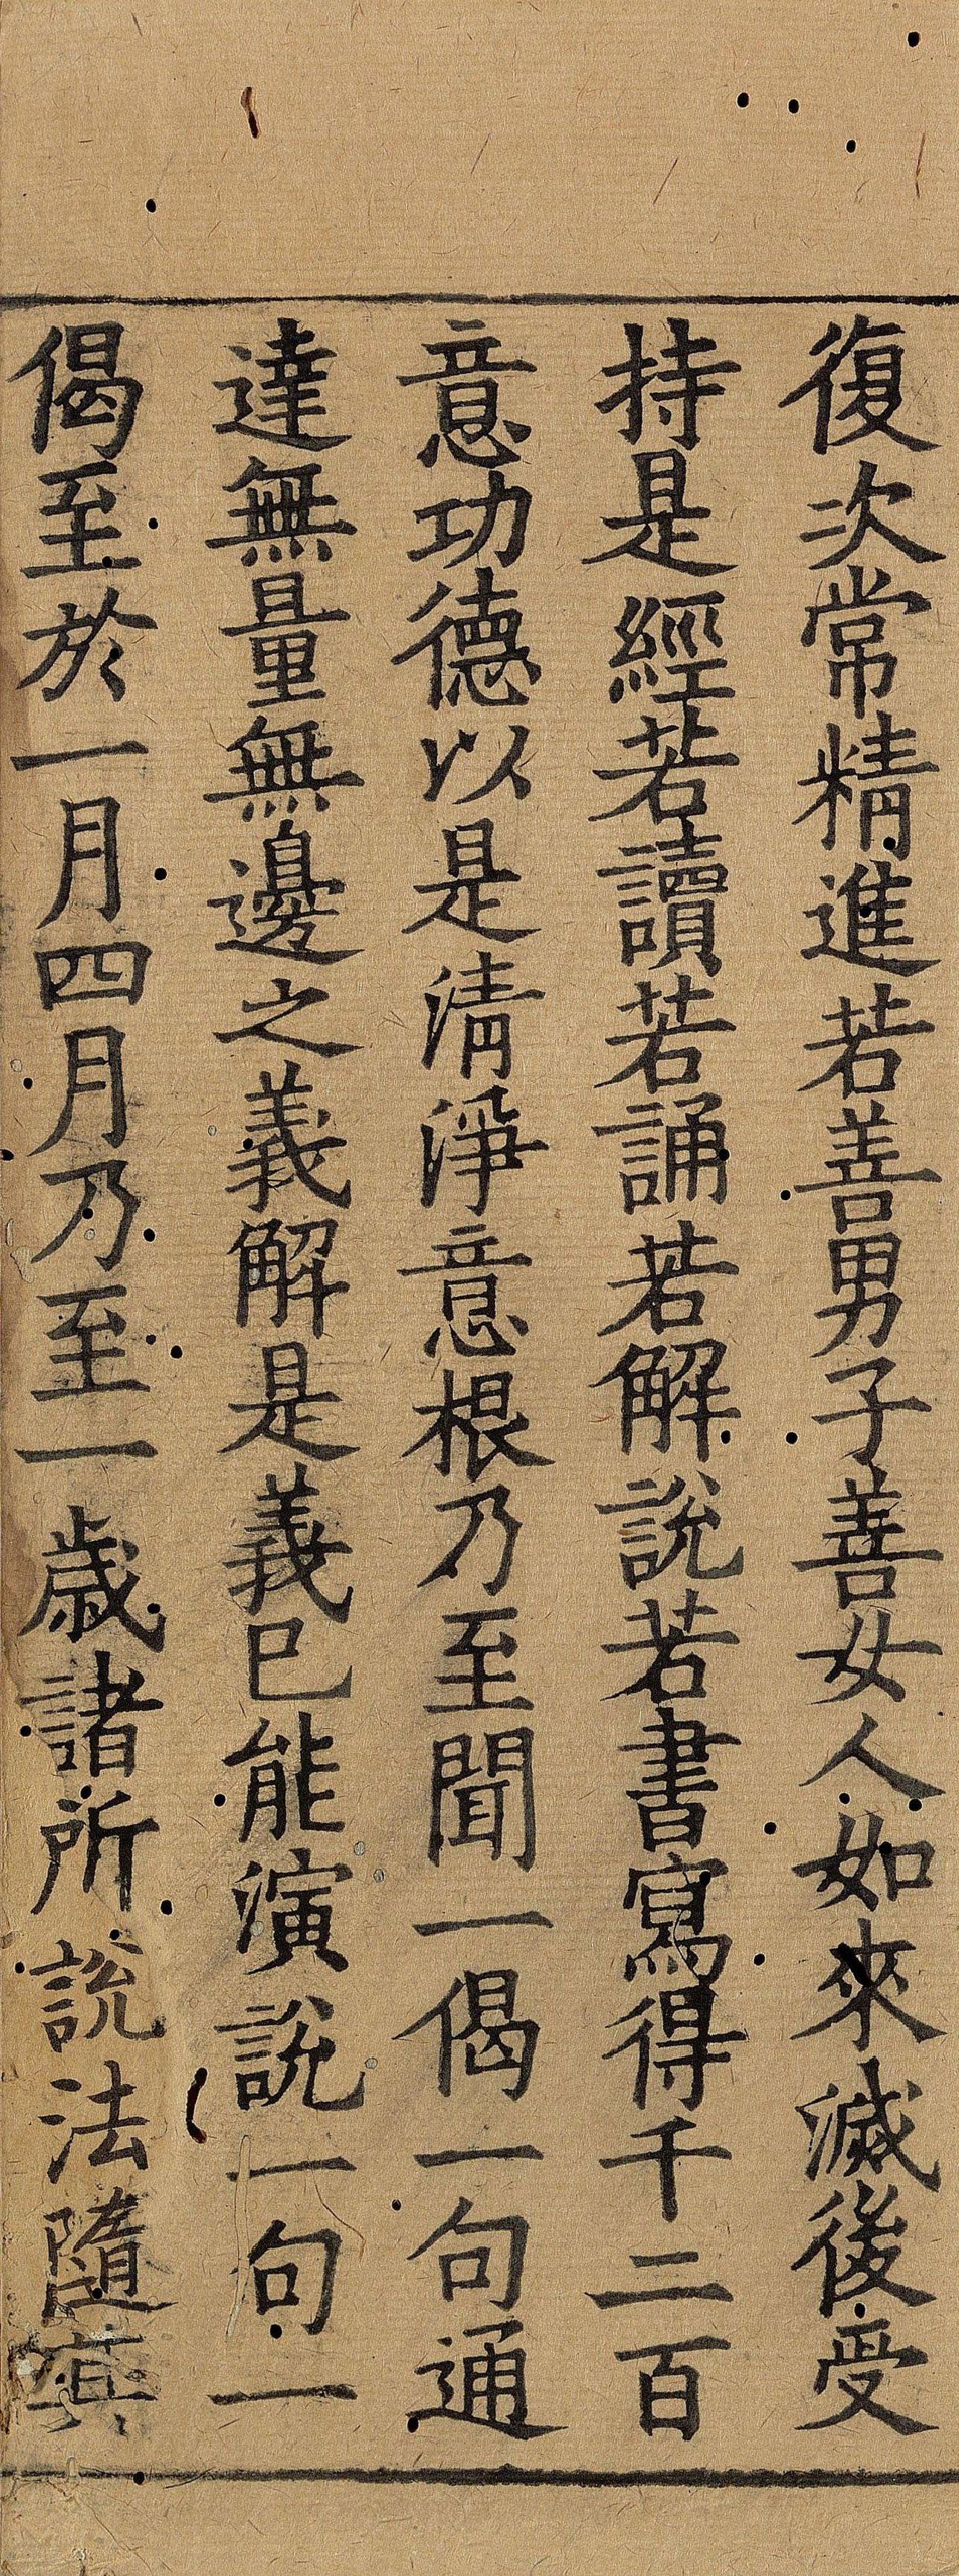 復次常精進若善男子善女人如來滅後受
持是經若讀若誦若解說若書寫得千二百
意功德以是清淨意根乃至聞一偈一句通
達無量無邊之義解是義已能演說一句一
偈至於一月四月乃至一歲諸所說法隨其